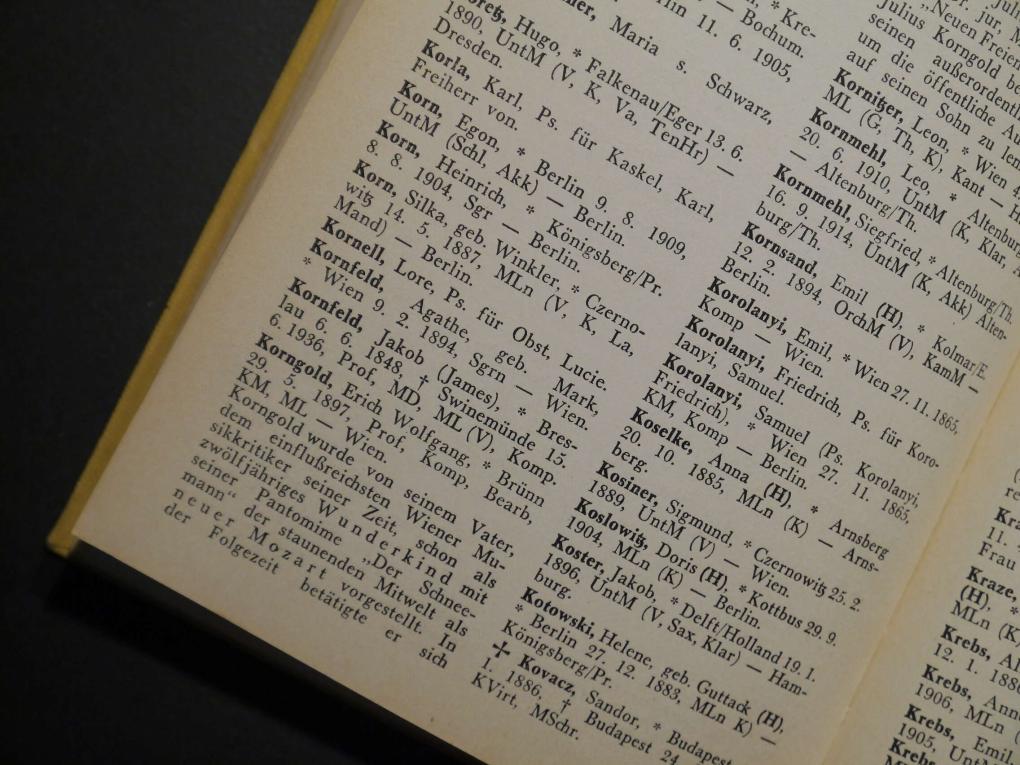 ner, Maria s. Schwarz,
Hugo, * Falkenau/Eger 13. 6.
1890, UntM (V, K, Va, TenHr) —
Dresden.
Korla, Karl, Ps. für Kaskel, Karl,
Freiherr von.
Korn, Egon, * Berlin 9. 8. 1909,
UntM (Schl, Akk) — Berlin.
Korn, Heinrich, * Königsberg/Pr.
8. 8. 1904, Sgr — Berlin.
Korn, Silka, geb. Winkler, * Czerno-
witz 14. 5. 1887, MLn (V, K, La,
Mand) — Berlin.
Kornell, Lore, Ps. für Obst, Lucie.
Kornfeld, Agathe, geb. Mark,
* Wien 9. 2. 1894, Sgrn — Wien.
Kornfeld, Jakob (James), * Bres-
lau 6. 6. 1848, † Swinemünde 15.
6. 1936, Prof, MD, ML (V), Komp.
Korngold, Erich Wolfgang, * Brünn
29. 5. 1897, Prof, Komp, Bearb,
KM, ML — Wien.
Korngold wurde von seinem Vater,
dem einflußreichsten Wiener Mu-
sikkritiker seiner Zeit, schon als
zwölfjähriges Wunderkind mit
seiner Pantomime „Der Schnee-
mann“ der staunenden Mitwelt als
neuer Mozart vorgestellt. In
der Folgezeit betätigte er sich
* Kre-
— Bochum.
11. 6. 1905,
Jul
jur, M
„Neuen Freien
Julius Korngold be
seinen außerordentl
um die öffentliche Au
auf seinen Sohn zu len
Kornitzer, Leon, * Wien 4
ML (G, Th, K), Kant — H
Kornmehl, Leo, * Altenburg
20. 6. 1910, UntM (K, Klar, A
— Altenburg/Th.
Kornmehl, Siegfried, * Altenburg/Th.
16. 9. 1914, UntM (K, Akk) Alten-
burg/Th.
Kornsand, Emil (H), * Kolmar/E.
12. 2. 1894, OrchM (V), KamM —
Berlin.
Korolanyi, Emil, * Wien 27. 11. 1865,
Komp — Wien.
Korolanyi, Friedrich, Ps. für Koro-
lanyi, Samuel.
Korolanyi, Samuel (Ps. Korolanyi,
Friedrich), * Wien 27. 11. 1865,
KM, Komp — Berlin.
Koselke, Anna (H), * Arnsberg
20. 10. 1885, MLn (K) — Arns-
berg.
Kosiner, Sigmund, * Czernowitz 25. 2.
1889, UntM (V) — Wien.
Koslowitz, Doris (H), * Kottbus 29. 9.
1904, MLn (K) — Berlin.
Koster, Jakob, * Delft/Holland 19. 1.
1896, UntM (V, Sax, Klar) — Ham-
burg.
Kotowski, Helene, geb. Guttack (H),
* Berlin 27. 12. 1883, MLn K) —
Königsberg/Pr.
✢ Kovacz, Sandor, * Budapest
1. 1886, † Budapest 24.
KVirt, MSchr.
11. 4.
Frau
Kraze,
(H), *
MLn (K)
Krebs, Al
12. 1. 1886
Krebs, Ann
1906, MLn (
Krebs, Emil,
1905, UntM
Krebs